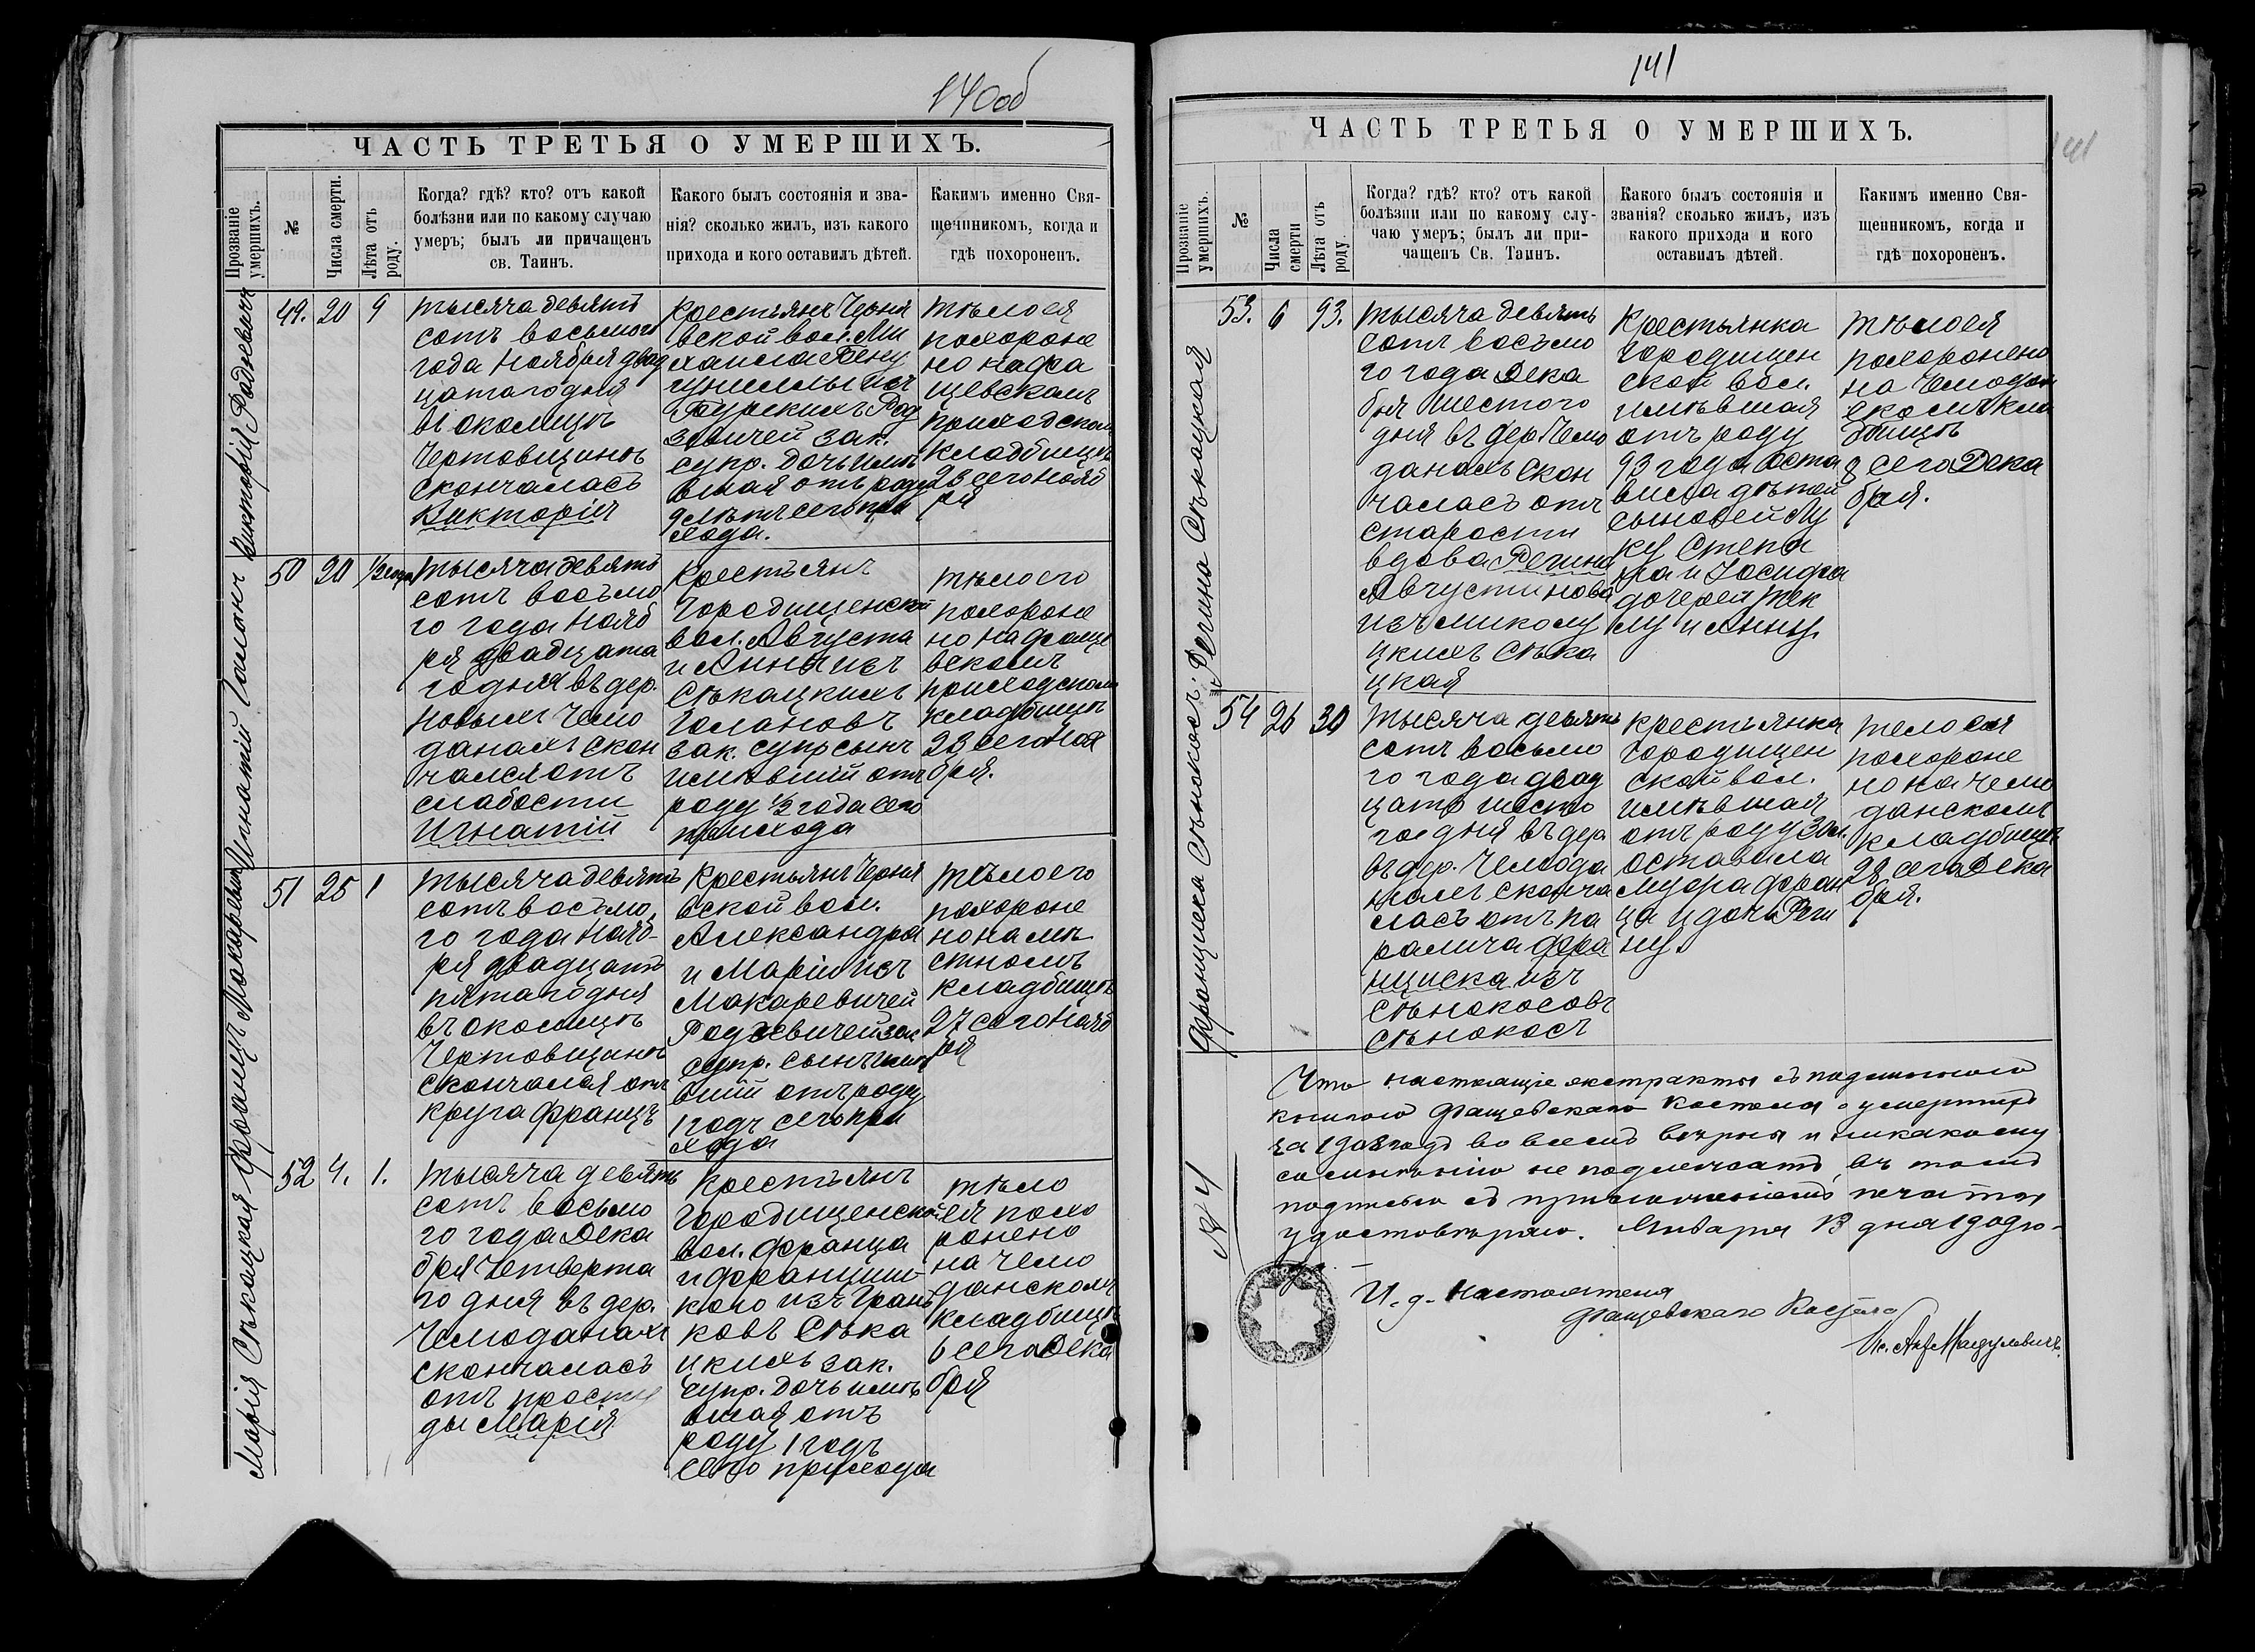 140об
ЧАСТЬ ТРЕТЬЯ О УМЕРШИХЪ.
Прозваніе умершихъ.
№
Числа смерти.
Лѣта отъ роду.
Когда? гдѣ? кто? отъ какой
болѣзни или по какому случаю
умеръ; былъ ли причащенъ
св. Таинъ.
Какого былъ состоянія и зва-
нія? сколько жилъ, изъ какого
прихода и кого оставилъ дѣтей.
Каким именно Свя-
щенникомъ, когда и
гдѣ похороненъ.
Викторія Родзевичъ
49.
20
9
тысяча девять
сотъ восьмого
года Ноября двад
цатаго дня
въ околицѣ
Чертовщинѣ
скончалась
Викторія
Крестьянъ Черня
вской вол. Ми
хаила
Родз
евичей зак.
супр. дочь имѣ
вшая отъ роду
9 лѣтъ сего при
хода.
тѣло ея
похороне
но на Фа
щевскомъ
приходскомъ
кладбищѣ
23 сего Нояб
ря
Игнатій Голанъ
50
20
1/2 года
тысяча девять
сотъ восьмо
го года Нояб
ря двадцата
го дня въ дер.
Новыхъ Чемо
данахъ скон
чался отъ
слабости
Игнатій
Крестьянъ
Городищенской
вол. Августа
и Анны изъ
Сѣкацкихъ
Голановъ
зак. супр сынъ
имѣвшій отъ
роду 1/2 года сего
прихода
тѣло его
похороне
но на Фаще
вскомъ
приходскомъ
кладбищѣ
23 сего Ноя
бря.
Францъ Макаревичъ
51
25
1
тысяча девять
сотъ восьмо
го года Нояб
ря двадцать
пятаго дня
въ околицѣ
Чертовщинѣ
скончался отъ
крупа Францъ
Крестьянъ Черня
вской вол.
Александра
и Маріи изъ
Макаревичей
Родзевичей зак
супр. сынъ имѣ
вшій отъ роду
1 годъ сего при
хода
тѣло его
похороне
но на мѣ
стномъ
кладбищѣ
27 сего Нояб
ря
Марія Сѣкацкая
52
4.
1.
тысяча девять
сотъ восьмо
го года Дека
бря четверта
го дня въ дер.
Чемоданахъ
скончалась
отъ просту
ды Марія
Крестьянъ
Городищенской
вол. Франца
и Францишки
изъ
Сѣка
цкихъ зак.
супр. дочь имѣ
вшая отъ
роду 1 годъ
сего прихода
тѣло
ея похо
ронено
на чемо
данскомъ
кладбищѣ
6 сего Дека
бря
141
141
ЧАСТЬ ТРЕТЬЯ О УМЕРШИХЪ.
Прозваніе умершихъ.
№
Числа смерти
Лѣта отъ роду.
Когда? гдѣ? кто? отъ какой
болѣзни или по какому слу-
чаю умеръ; былъ ли при-
чащенъ Св. Таинъ.
Какого былъ состоянія и
званія? сколько жилъ, изъ
какого прихода и кого
оставилъ дѣтей.
Какимъ именно Свя-
щенникомъ, когда и
гдѣ похороненъ.
Регина Сѣкацкая
53.
6
93.
тысяча девять
сотъ восьмо
го года Дека
бря шестого
дня въ дер. Чемо
данахъ скон
чалась отъ
старости
вдова Регина
Августинова
изъ Миколу
цкихъ Сѣка
цкая
Крестьянка
Городищен
ской вол.
имѣвшая
отъ роду
93 года оста
вила дѣтей
сыновей Лу
ку Степа
на и Іосифа
дочерей Тек
лу и Анну.
тѣло ея
похоронено
на Чемодан
скомъ кла
бищѣ
8 сего Дека
бря.
Франциска Сѣнокосъ.
54
26
30
тысяча девять
сотъ восьмо
го года двад
цать шесто
го дня въ дер.
въ дер. Чемода
нахъ сконча
лась отъ па
ралича Фра
нциска изъ
Сѣнокосовъ
Сѣнокосъ
Крестьянка
Городищен
ской вол.
имѣвшая
отъ роду 30 л.
оставила
мужа Фран
ца и дочь Реги
ну.
тело ея
похороне
но на чемо
данскомъ
кладбищѣ
28 сего Дека
бря.
№ 4
Что настоящіе экстракты съ подлинною
книгою Фащевскаго Костела о умершихъ
за 1908 годъ во всемъ вѣрны и никакому
сомнѣнію не подлежатъ, въ томъ
подписью съ приложеніемъ печати
удостовѣряю. Января 13 дня 1909 го-
да. –
И. д. Настоятеля
Фащевскаго Костела